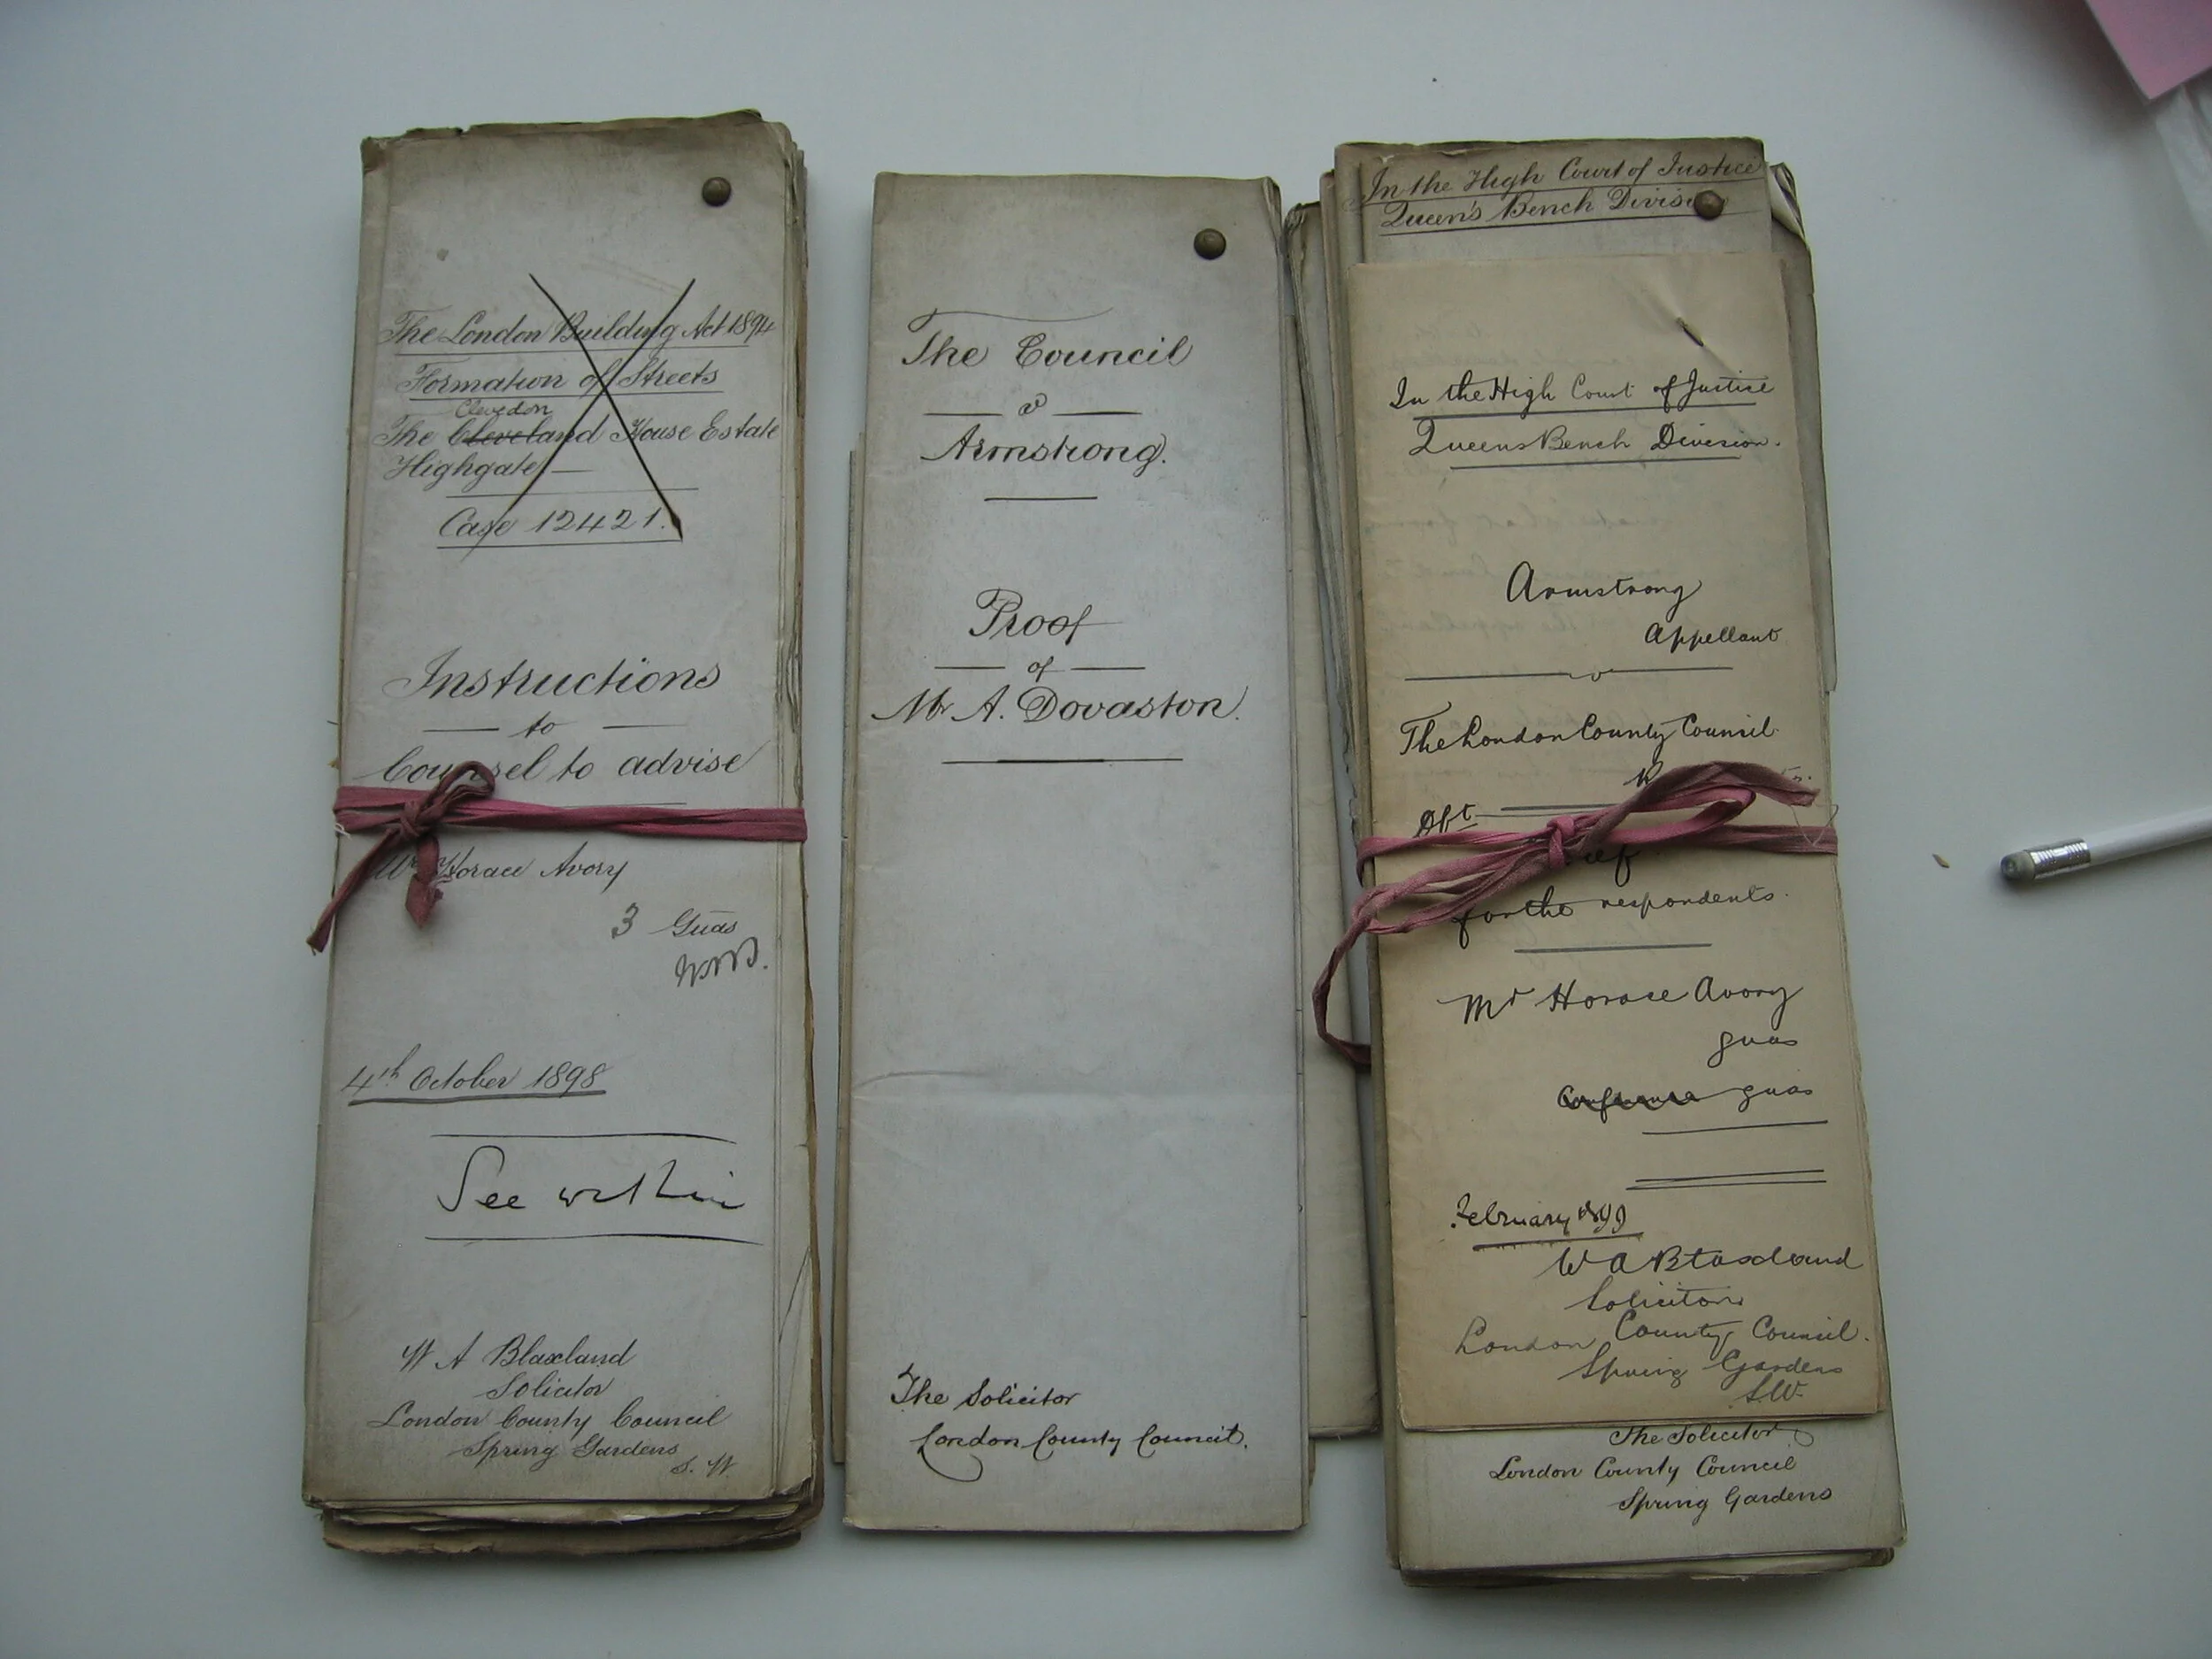 The London Building Act 1894
Formation of Streets
Clevedon
The Cleveland House Estate
Highgate
Case 12421.
Instructions
to
Counsel to advise
Mr Horace Avory
3 Guas
4th October 1898
See within
W A Blaxland
Solicitor
London County Council
Spring Gardens
S. W.
The Council
v
Armstrong.
Proof
of
Mr A. Dovaston.
The Solicitor
London County Council.
In the High Court of Justice
Queen's Bench Division
In the High Court of Justice
Queens Bench Division.
Armstrong
Appellant
v
The London County Council
for the respondents.
Mr Horace Avory
guas
Conference guas
February 1899
W A Blaxland
Solicitor
London County Council.
Spring Gardens
S.W.
The Solicitor
London County Council
Spring Gardens